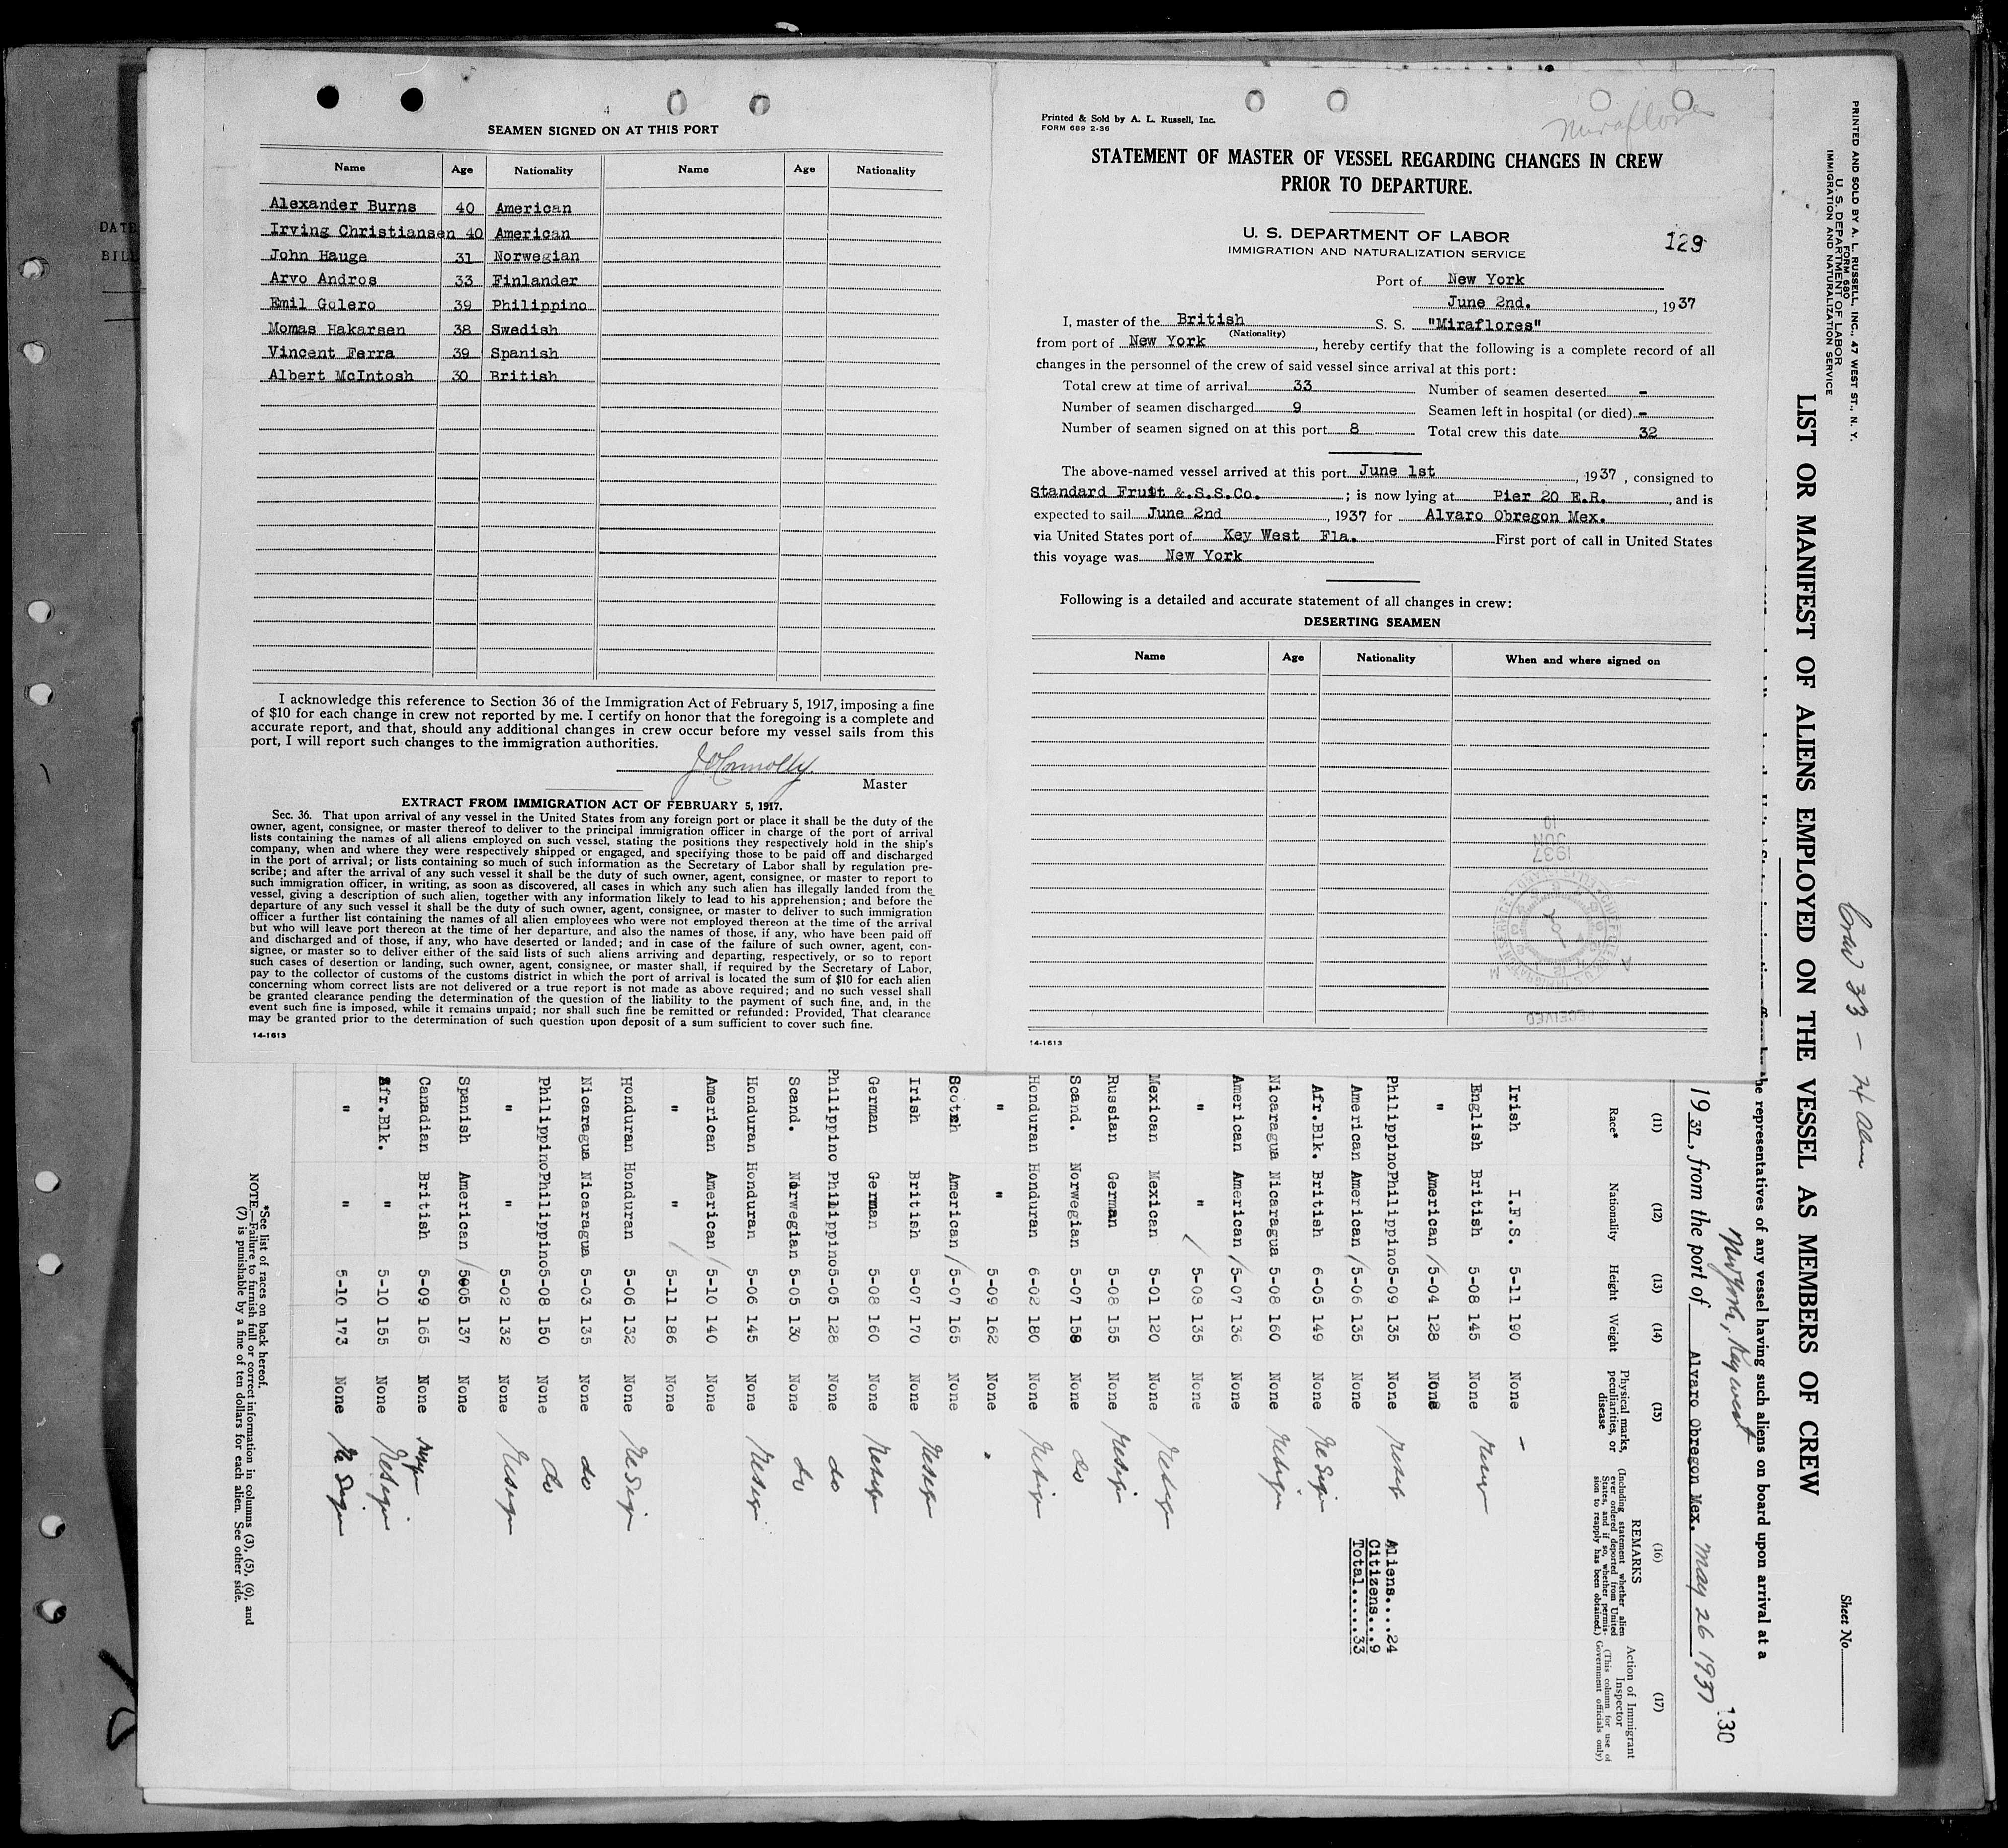 DATE
BILL
4
SEAMEN SIGNED ON AT THIS PORT
Name Age Nationality Name Age Nationality
Alexander Burns 40 American
Irving Christiansen 40 American
John Hauge 31 Norwegian
Arvo Andros 33 Finlander
Emil Golero 39 Philippino
Momas Hakarsen 38 Swedish
Vincent Ferra 39 Spanish
Albert McIntosh 30 British
I acknowledge this reference to Section 36 of the Immigration Act of February 5, 1917, imposing a fine
of $10 for each change in crew not reported by me. I certify on honor that the foregoing is a complete and
accurate report, and that, should any additional changes in crew occur before my vessel sails from this
port, I will report such changes to the immigration authorities.
J O Connolly.
Master
EXTRACT FROM IMMIGRATION ACT OF FEBRUARY 5, 1917.
Sec. 36. That upon arrival of any vessel in the United States from any foreign port or place it shall be the duty of the
owner, agent, consignee, or master thereof to deliver to the principal immigration officer in charge of the port of arrival
lists containing the names of all aliens employed on such vessel, stating the positions they respectively hold in the ship's
company, when and where they were respectively shipped or engaged, and specifying those to be paid off and discharged
in the port of arrival; or lists containing so much of such information as the Secretary of Labor shall by regulation pre-
scribe; and after the arrival of any such vessel it shall be the duty of such owner, agent, consignee, or master to report to
such immigration officer, in writing, as soon as discovered, all cases in which any such alien has illegally landed from the
vessel, giving a description of such alien, together with any information likely to lead to his apprehension; and before the
departure of any such vessel it shall be the duty of such owner, agent, consignee, or master to deliver to such immigration
officer a further list containing the names of all alien employees who were not employed thereon at the time of the arrival
but who will leave port thereon at the time of her departure, and also the names of those, if any, who have been paid off
and discharged and of those, if any, who have deserted or landed; and in case of the failure of such owner, agent, con-
signee, or master so to deliver either of the said lists of such aliens arriving and departing, respectively, or so to report
such cases of desertion or landing, such owner, agent, consignee, or master shall, if required by the Secretary of Labor,
pay to the collector of customs of the customs district in which the port of arrival is located the sum of $10 for each alien
concerning whom correct lists are not delivered or a true report is not made as above required; and no such vessel shall
be granted clearance pending the determination of the question of the liability to the payment of such fine, and, in the
event such fine is imposed, while it remains unpaid; nor shall such fine be remitted or refunded: Provided, That clearance
may be granted prior to the determination of such question upon deposit of a sum sufficient to cover such fine.
14-1613
Miraflores
Printed & Sold by A. L. Russell, Inc.
FORM 689 2-36
STATEMENT OF MASTER OF VESSEL REGARDING CHANGES IN CREW
PRIOR TO DEPARTURE.
U. S. DEPARTMENT OF LABOR
IMMIGRATION AND NATURALIZATION SERVICE
129
Port of New York
June 2nd. , 1937
I, master of the British S. S. "Miraflores"
(Nationality)
from port of New York , hereby certify that the following is a complete record of all
changes in the personnel of the crew of said vessel since arrival at this port:
Total crew at time of arrival 33 Number of seamen deserted -
Number of seamen discharged 9 Seamen left in hospital (or died) -
Number of seamen signed on at this port 8 Total crew this date 32
The above-named vessel arrived at this port June 1st , 1937 , consigned to
Standard Fruit &.S.S.Co. ; is now lying at Pier 20 E.R. , and is
expected to sail June 2nd , 1937 for Alvaro Obregon Mex.
via United States port of Key West Fla. First port of call in United States
this voyage was New York
Following is a detailed and accurate statement of all changes in crew:
DESERTING SEAMEN
Name Age Nationality When and where signed on
RECEIVED
1937
JUN
10
14-1613
PRINTED AND SOLD BY A. L. RUSSELL, INC., 47 WEST ST., N. Y.
FORM 680
U. S. DEPARTMENT OF LABOR
IMMIGRATION AND NATURALIZATION SERVICE
Crew 33 - 24 Alien
Sheet No.
LIST OR MANIFEST OF ALIENS EMPLOYED ON THE VESSEL AS MEMBERS OF CREW
the representatives of any vessel having such aliens on board upon arrival at a
New York, Key west
130
1937, from the port of Alvaro Obregon Mex. May 26 1937
(11) (12) (13) (14) (15) (16) (17)
Race* Nationality Height Weight Physical marks, peculiarities, or disease REMARKS (Including statement whether alien ever ordered deported from United States, and if so, whether permission to reapply has been obtained.) Action of Immigrant Inspector (This column for use of Government officials only)
Irish I.F.S. 5-11 190 None -
English British 5-08 145 None
" American / 5-04 128 None
Philippino Philippino 5-09 135 None
Aliens....24
American American / 5-06 135 None
Citizens...9
Total.....33
Afr.Blk. British 6-05 149 None Ne Sign
Nicaragua Nicaragua 5-08 160 None Resign
American American / 5-07 136 None
" " / 5-08 135 None
Mexican Mexican 5-01 120 None Resign
Russian German 5-08 155 None Resign
Scand. Norwegian 5-07 158 None do
Honduran Honduran 6-02 180 None Resign
" " 5-09 162 None "
Scotch American / 5-07 165 None
Irish British 5-07 170 None Resign
German German 5-08 160 None Resign
Philippino Philippino 5-05 128 None do
Scand. Norwegian 5-05 130 None do
Honduran Honduran 5-06 145 None Resign
American American / 5-10 140 None
" " / 5-11 186 None
Honduran Honduran 5-06 132 None Resign
Nicaragua Nicaragua 5-03 135 None do
Philippino Philippino 5-08 150 None do
" " 5-02 132 None Resign
Spanish American / 5005 137 None
Canadian British 5-09 165 None
Afr.Blk. " 5-10 155 None Resign
" " 5-10 173 None Re Sign
*See list of races on back hereof.
NOTE.—Failure to furnish full or correct information in columns (3), (5), (6), and
(7) is punishable by a fine of ten dollars for each alien. See other side.